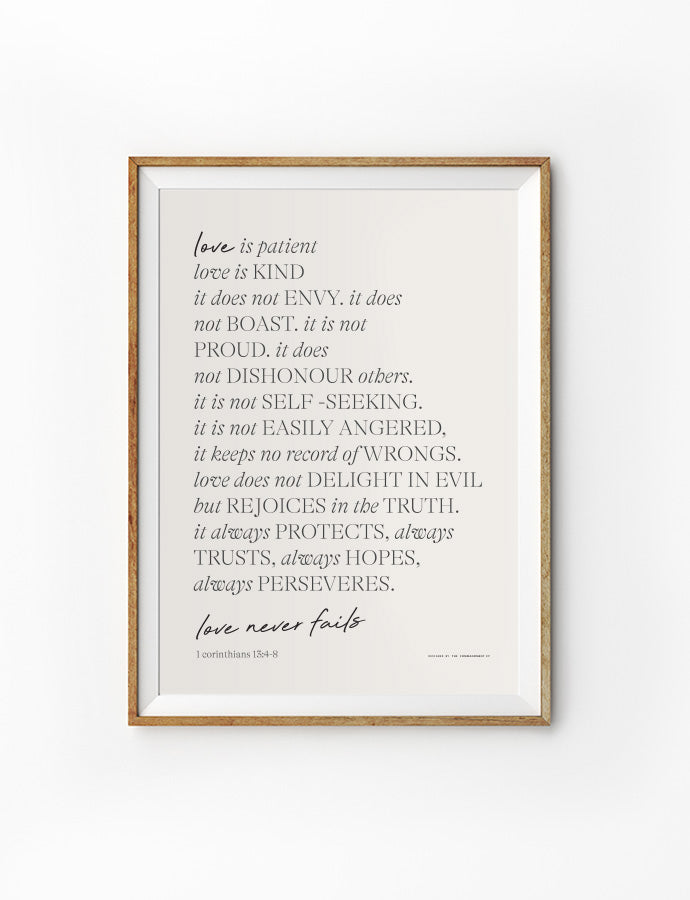 love is patient
love is KIND
it does not ENVY. it does
not BOAST. it is not
PROUD. it does
not DISHONOUR others.
it is not SELF -SEEKING.
it is not EASILY ANGERED,
it keeps no record of WRONGS.
love does not DELIGHT IN EVIL
but REJOICES in the TRUTH.
it always PROTECTS, always
TRUSTS, always HOPES,
always PERSEVERES.
love never fails
1 corinthians 13:4-8
DESIGNED BY THE COMMANDMENT CO